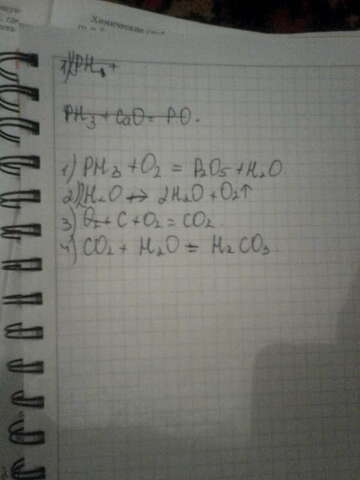 Химические
1) PH₃ +
PH₃ + CaO = PO
1) PH₃ + O₂ = P₂O₅ + H₂O
2) H₂O → 2H₂O + O₂↑
3) O₂ + C + O₂ = CO₂
4) CO₂ + H₂O = H₂CO₃